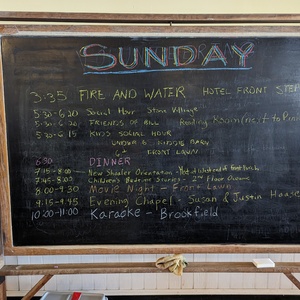 SUNDAY
3:35 FIRE AND WATER HOTEL FRONT STEP
5:30-6:20 Social Hour Stone Village
5:30-6:20 FRIENDS OF BILL Reading Room (next to
5:30-6:15 KIDS SOCIAL HOUR
UNDER 8: KIDDIE BARN
6+ FRONT LAWN
6:30 DINNER
7:45-8:00 New Shoaler Orientation - West end of Front Porch
7:45-8:00 Children's Bedtime Stories - 2nd Floor
8:00-9:30 Movie Night - Front Lawn
9:15-9:45 Evening Chapel - Susan & Justin Haase
10:00-11:00 Karaoke - Brookfield